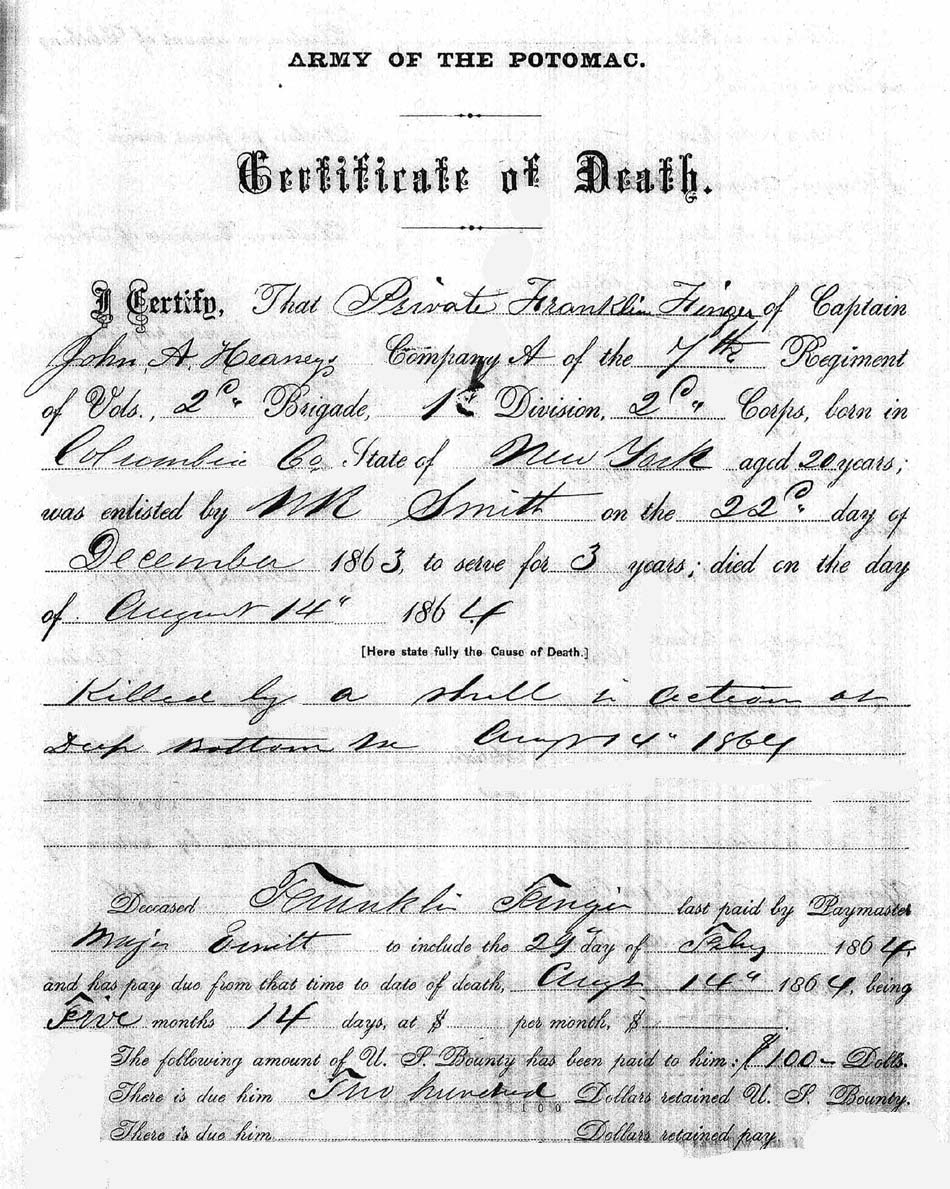 ARMY OF THE POTOMAC.
Certificate of Death.
I Certify, That Private Franklin Finger of Captain
John A. Heaneys Company A of the 7th Regiment
of Vols., 2d" Brigade, 1st Division, 2d" Corps, born in
Columbia Co State of New York aged 20 years;
was enlisted by Smith on the 22d" day of
December 1863, to serve for 3 years; died on the day
of August 14" 1864
[Here state fully the Cause of Death.]
Killed by a shell in action at
Deep Bottom Augt 14" 1864
Deceased Franklin Finger last paid by Paymaster
Major to include the 29" day of Feby 1864,
and has pay due from that time to date of death, Augt 14" 1864, being
Five months 14 days, at $ per month, $
The following amount of U. S. Bounty has been paid to him: $100– Dolls.
There is due him Two hundred Dollars retained U. S. Bounty.
100
There is due him Dollars retained pay